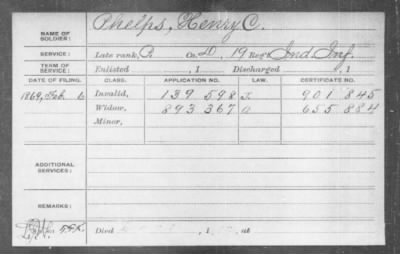 NAME OF SOLDIER: Phelps, Henry C.
SERVICE: Late rank, Co. D, 19 Reg't Ind. Inf.
TERM OF SERVICE: Enlisted , 1 Discharged , 1
DATE OF FILING. CLASS. APPLICATION NO. LAW. CERTIFICATE NO.
1869, Feb. 6 Invalid, 139 598 901 845
Widow, 893 367 655 884
Minor,
ADDITIONAL SERVICES:
REMARKS:
Died , 1 , at